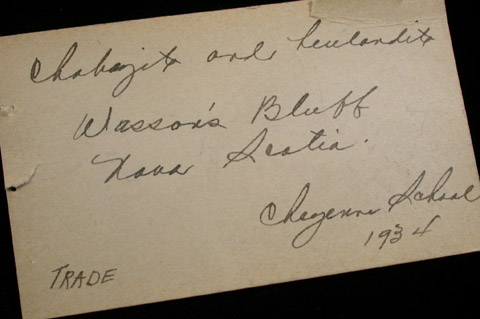 Chabazite and heulandite
Wasson's Bluff
Nova Scotia.
Cheyenne School
1934
TRADE